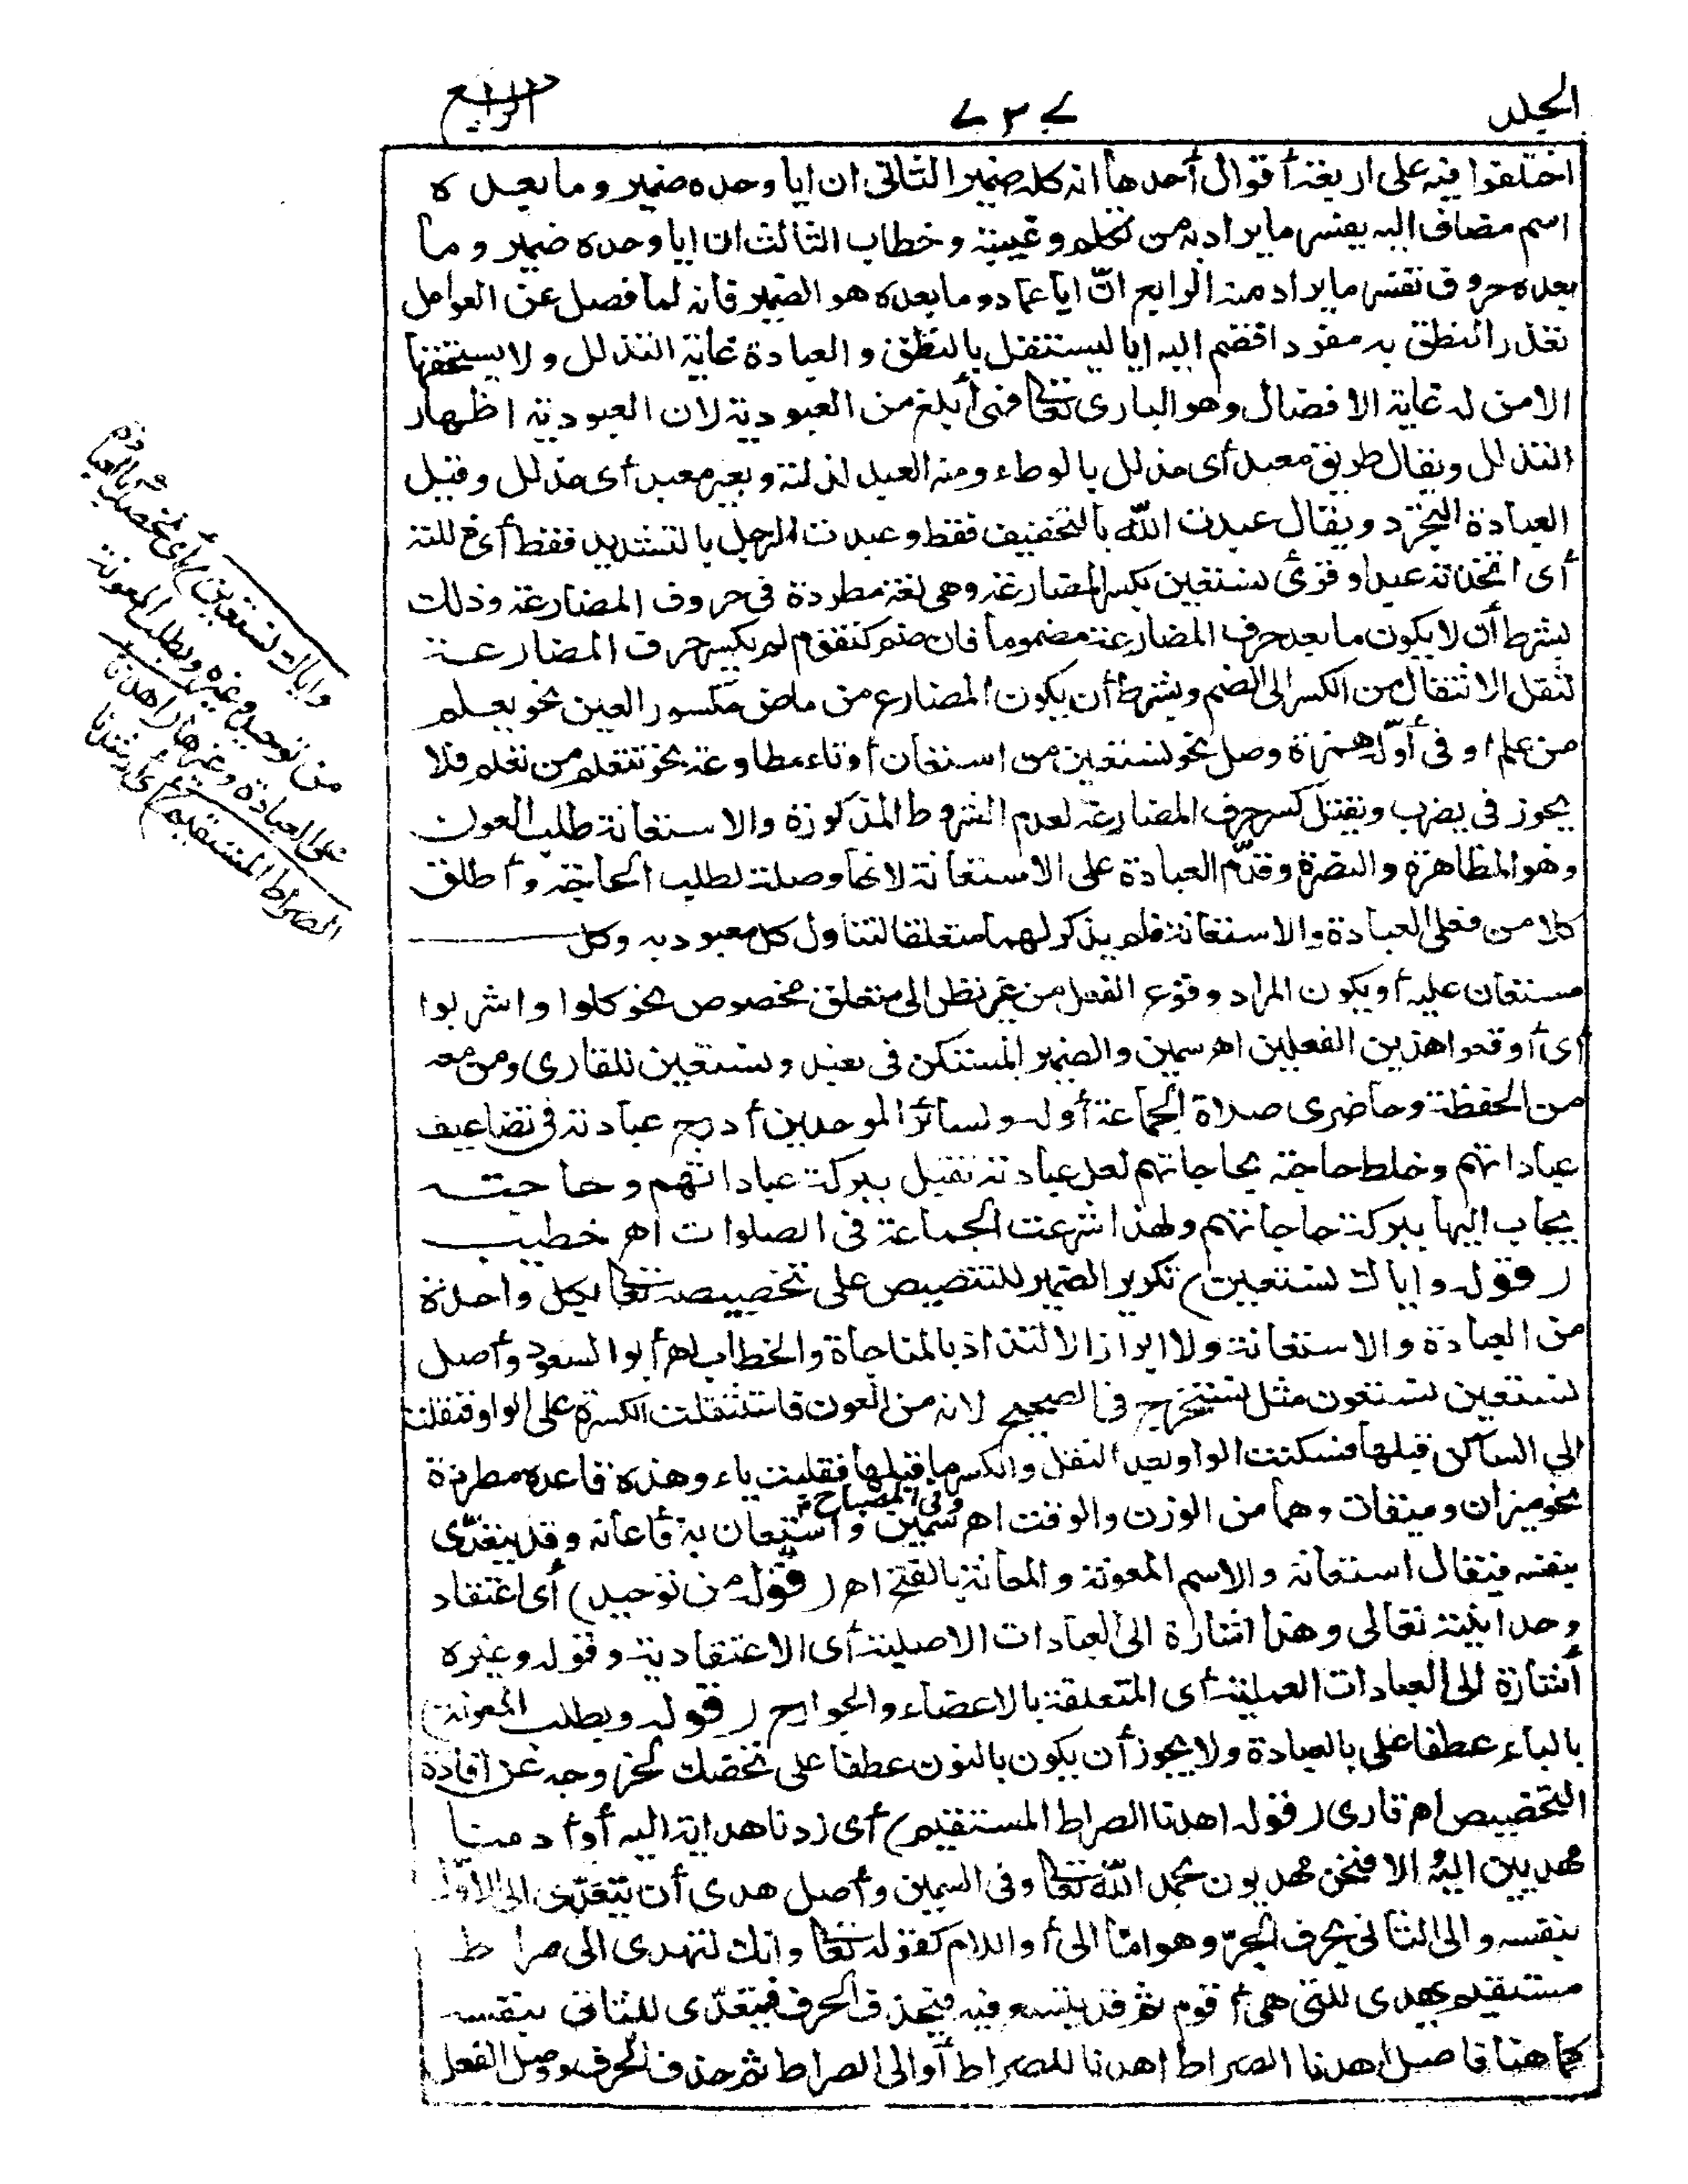 الجلد
٧٣٧
الرابع
اختلفوا فيه على اربعة أقوال أحدها انه كله ضمير الثانى ان ايا وحده ضمير وما بعده
اسم مضاف اليه يفسر ما يراد به من تكلم وغيبة وخطاب الثالث ان ايا وحده ضمير وما
بعده حروف تفسر ما يراد منه الرابع انّ ايا عماد وما بعده هو الضمير فانه لما فصل عن العوامل
تعذر النطق به مفردا فضم اليه ايا ليستقل بالنطق والعبادة غاية التذلل ولا يستحقها
الا من له غاية الافضال وهو البارى تعا فهى أبلغ من العبودية لان العبودية اظهار
التذلل ويقال طريق معبد أى مذلل بالوطاء ومنه العبد لذلته وبعير معبد أى مذلل وقيل
العبادة التجرد ويقال عبدت اللّه بالتخفيف فقط وعبدت الرجل بالتشديد فقط أى ذللته
أى اتخذته عبدا وقرئ نستعين بكسر المضارعة وهى لغة مطردة فى حروف المضارعة وذلك
بشرط أن لا يكون ما بعد حرف المضارعة مضموما فان ضم كنقوم لم يكسر حرف المضارعة
لثقل الانتقال من الكسر الى الضم وبشرط أن يكون المضارع من ماض مكسور العين نحو يعلم
من علم او فى أوّله همزة وصل نحو نستعين من استعان أو تاء مطاوعة نحو نتعلم من تعلم فلا
يجوز فى يضرب ويقتل كسر حرف المضارعة لعدم الشروط المذكورة والاستعانة طلب العون
وهو المظاهرة والنصرة وقدّم العبادة على الاستعانة لانها وصلة لطلب الحاجة وأطلق
كلا من فعلى العبادة والاستعانة فلم يذكر لهما متعلقا لتناول كل معبود به وكل
مستعان عليه أو يكون المراد وقوع الفعل من غير نظر الى متعلق مخصوص نحو كلوا واشربوا
أى أوقعوا هذين الفعلين اهـ سمين والضمير المستكن فى نعبد ونستعين للقارى ومن معه
من الحفظة وحاضرى صلاة الجماعة أو له ولسائر الموحدين أدرج عبادته فى تضاعيف
عباداتهم وخلط حاجته بحاجاتهم لعل عبادته تقبل ببركة عباداتهم وحاجته
يجاب اليها ببركة حاجاتهم ولهذا شرعت الجماعة فى الصلوات اهـ خطيب
(قوله واياك نستعين) تكرير الضمير للتنصيص على تخصيصه تعا بكل واحدة
من العبادة والاستعانة ولابراز الالتذاذ بالمناجاة والخطاب اهـ أبو السعود وأصل
نستعين نستعون مثل نستخرج فى الصحيح لانه من العون فاستثقلت الكسرة على الواو فنقلت
الى الساكن قبلها فسكنت الواو بعد النقل وانكسر ما قبلها فقلبت ياء وهذه قاعدة مطردة
نحو ميزان وميقات وهما من الوزن والوقت اهـ سمين وفى المصباح واستعان به فأعانه وقد يتعدّى
بنفسه فيقال استعانه والاسم المعونة والمعانة بالفتح اهـ (قوله من توحيد) أى اعتقاد
وحدانيته تعالى وهذا اشارة الى العبادات الاصلية أى الاعتقادية وقوله وغيره
أشارة الى العبادات العملية أى المتعلقة بالاعضاء والجوارح (قوله وبطلب المعونة)
بالباء عطفا على بالعبادة ولا يجوز أن يكون بالنون عطفا على نخصك لخروجه عن افادة
التخصيص اهـ قارى (قوله اهدنا الصراط المستقيم) أى زدنا هداية اليه أو أدمنا
مهديين اليه والا فنحن مهديون بحمد اللّه تعا وفى السمين وأصل هدى أن يتعدّى الى الأوّل
بنفسه والى الثانى بحرف الجرّ وهو امّا الى أو اللام كقوله تعا وانك لتهدى الى صراط
مستقيم يهدى للتى هى أقوم ثم قد يتسع فيه فيحذف الحرف فيتعدّى للثانى بنفسه
كما هنا فاصل اهدنا الصراط اهدنا للصراط أو الى الصراط ثم حذف الحرف ووصل الفعل
واياك نستعين) أى نخصك بالعبادة
من توحيد وغيره وبطلب المعونة
على العبادة وغيرها (اهدنا
الصراط المستقيم) أى أرشدنا